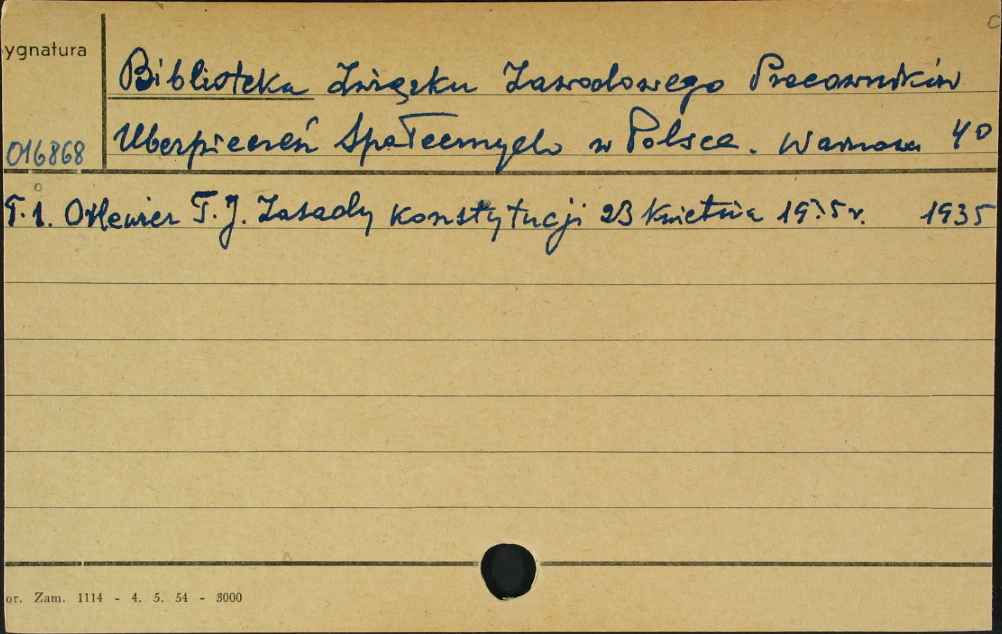 ygnatura
Biblioteka Związku Zawodowego Pracowników
016868 Ubezpieczeń Społecznych w Polsce. Warszawa 4°
T. 1. T. J. Zasady konstytucji 23 kwietnia 1935 r. 1935
or. Zam. 1114 - 4. 5. 54 - 3000